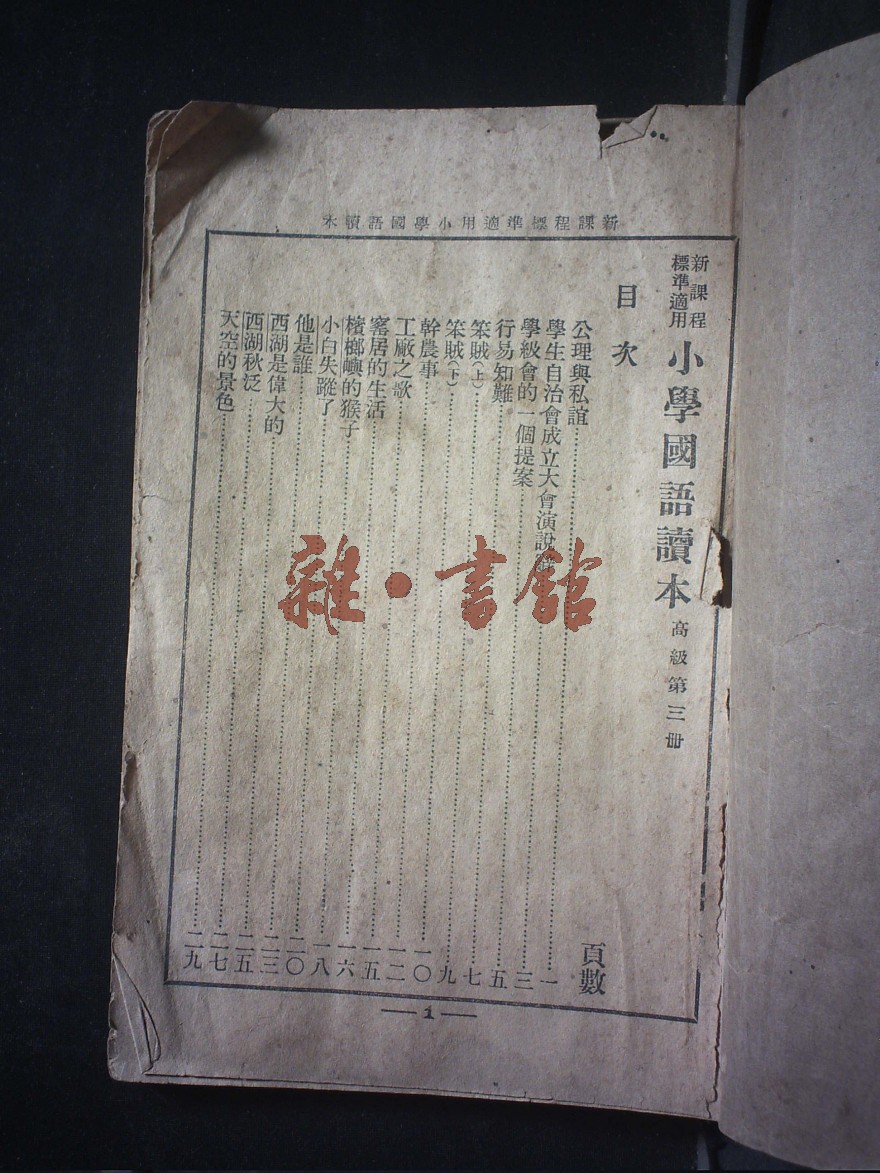 新課程標準適用小學國語讀本
新課程
標準適用
小學國語讀本 高級第三冊
目次
頁數
公理與私誼 一
學生自治會成立大會演說 三
學級會的一個提案 五
行易知難 七
笨賊(上) 九
笨賊(下) 一〇
幹農事 一二
工廠之歌 一五
窰居的生活 一六
檳榔嶼的猴子 一八
小白失蹤了 二〇
他是誰 二三
西湖是偉大的 二五
西湖秋泛 二七
天空的景色 二九
— 1 —
雜·書館